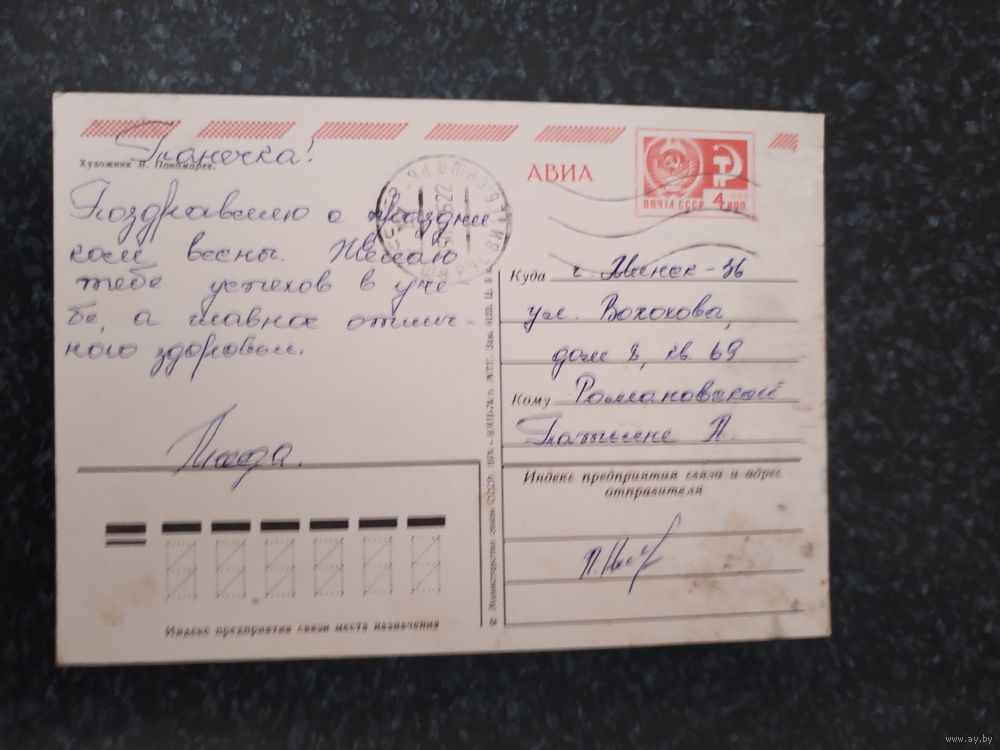 Танечка!
Художник В. Пономарев.
Поздравляю с праздни
ком весны. Желаю
тебе успехов в уче
бе, а главное отлич-
ного здоровья.
Люда.
АВИА
ПОЧТА СССР 4 КОП
Куда г. Минск-36
ул. Волохова,
дом 8, кв. 69
Кому Романовской
Татьяне А.
Индекс предприятия связи и адрес
отправителя
Индекс предприятия связи места назначения
© Министерство связи СССР. 1974
www.ay.by